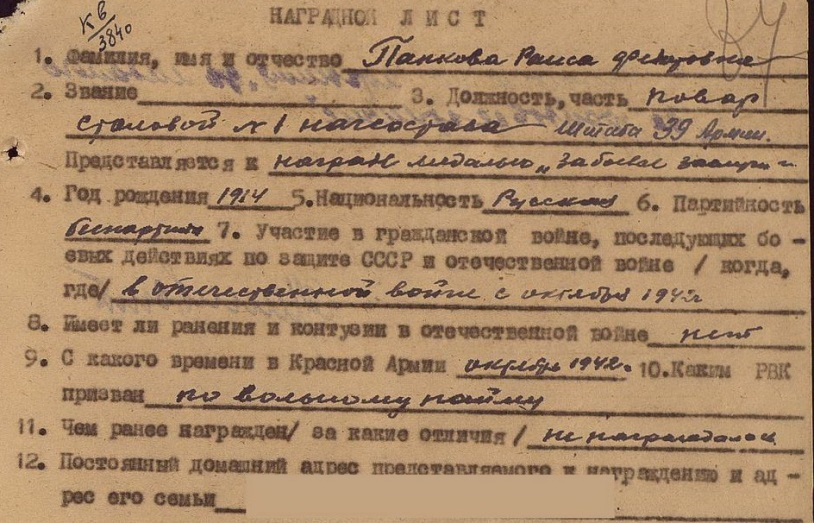 КВ
3840
НАГРАДНОЙ ЛИСТ
1. Фамилия, имя и отчество Панкова Раиса Федоровна
2. Звание 3. Должность, часть повар
столовой №1 начсостава Штаба 39 Армии.
Представляется к награж медалью „За боевые заслуги"
4. Год рождения 1914 5. Национальность Русская 6. Партийность
беспартийн 7. Участие в гражданской войне, последующих бо-
евых действиях по защите СССР и отечественной войне / когда,
где/ в отечественной войне с октября 1942г
8. Имеет ли ранения и контузии в отечественной войне нет
9. С какого времени в Красной Армии октября 1942г. 10. Каким РВК
призван по вольному найму
11. Чем ранее награжден/ за какие отличия/ не награждалась
12. Постоянный домашний адрес представляемого к награждению и ад-
рес его семьи